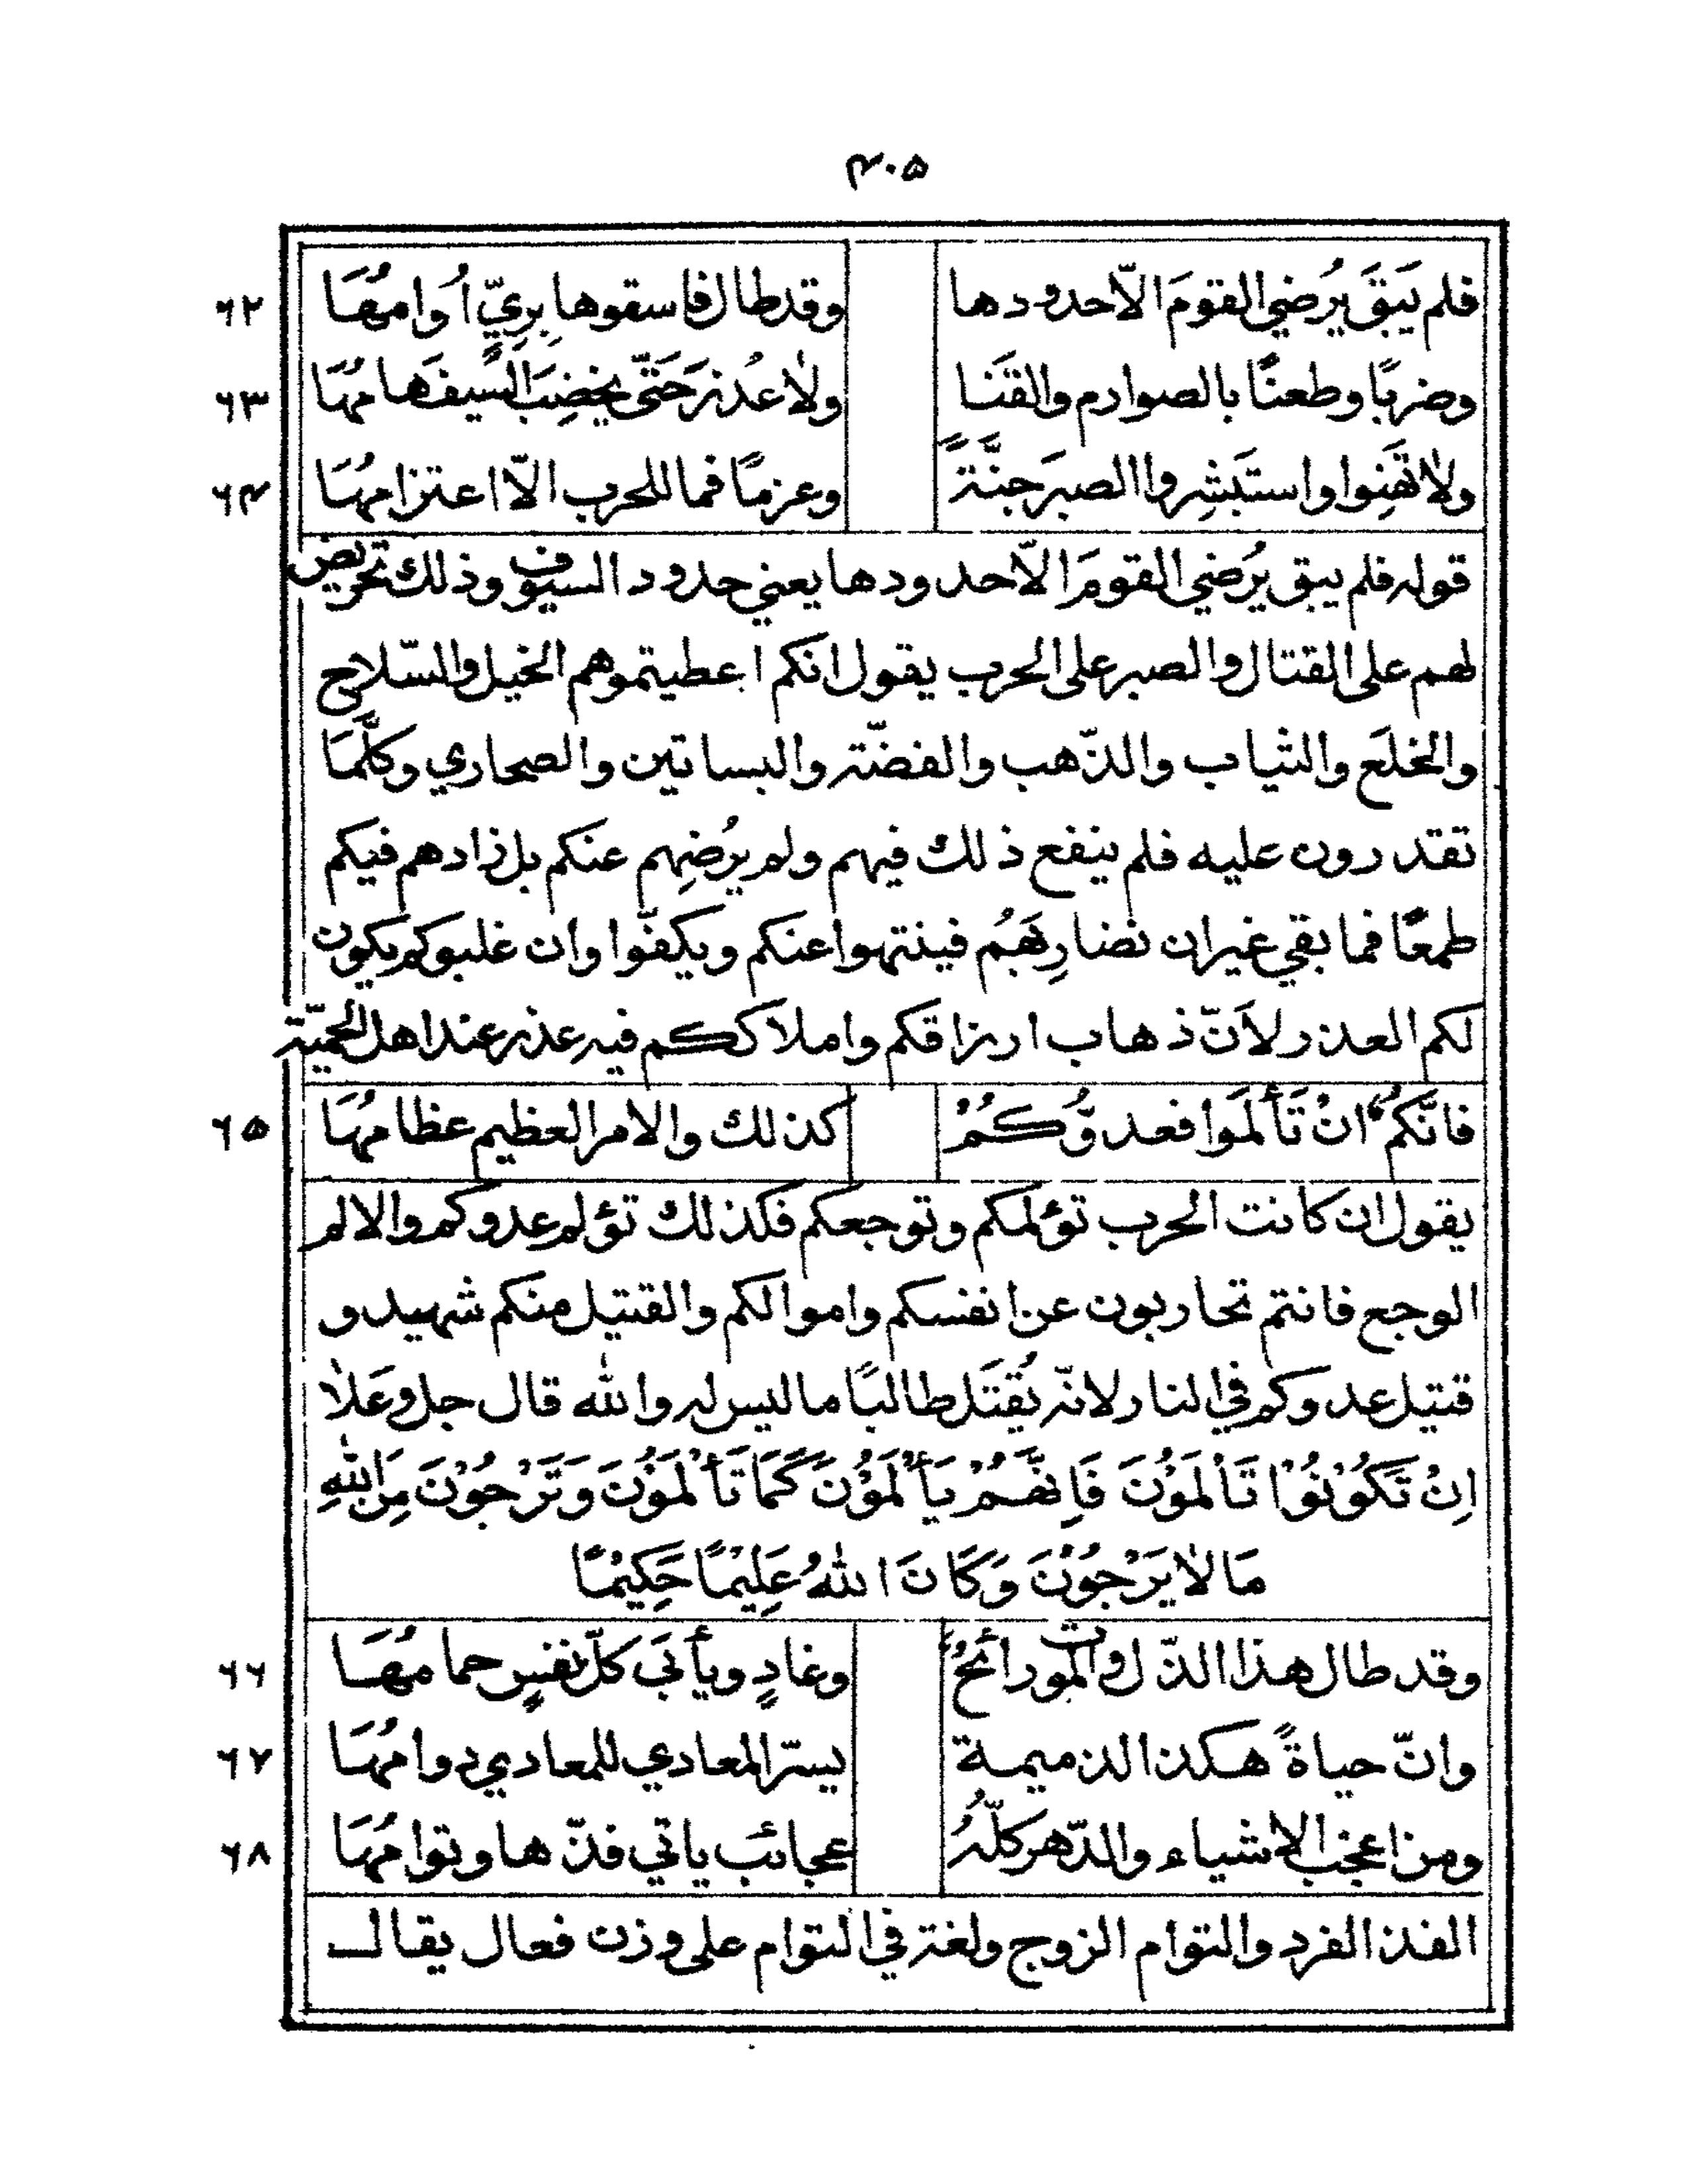 ۴۰۵
فلم يَبقَ يُرضي القومَ الّا حدودها وقد طال فاسقوها بِرِيٍّ اُوامُهَا ۶۲
وضربًا وطعنًا بالصوارم والقَنَا ولا عُذرَ حَتّى يخضِبَ السَيفَ هامُهَا ۶۳
ولا تَهِنوا واستَبشِروا الصبرَ جنَّةً وعزمًا فما للحرب الّا اعتزامُهَا ۶۴
قوله فلم يبق يُرضي القومَ الّا حدودها يعني حدود السيوف وذلك تحريض
لهم على القتال والصبر على الحرب يقول انكم اعطيتموهم الخيل والسّلاح
والخلَع والثياب والذّهب والفضّة والبساتين والصحاري وكلَّمَا
تقدرون عليه فلم ينفع ذلك فيهم ولم يُرضِهم عنكم بل زادهم فيكم
طمعًا فما بقي غير ان تضارِبَهُم فينتهوا عنكم ويكفّوا وان غلبوكم يكون
لكم العذر لاَنّ ذهاب ارزاقكم واملاككم فيه عذر عند اهل الحميّة
فانَّكُمُ انْ تَألَمَوا فعدوُّكُمْ كذلك والامر العظيم عظامُهَا ۶۵
يقول ان كانت الحرب تؤلمكم وتوجعكم فكذلك تؤلم عدوكم والالم
الوجع فانتم تحاربون عن انفسكم واموالكم والقتيل منكم شهيد و
قتيل عدوكم في النار لانّه يُقتَل طالبًا ما ليس له والله قال جل وعَلا
اِنْ تَكُوْنُوْا تَأْلَمُوْنَ فَاِنَّهُمْ يَأْلَمُوْنَ كَمَا تَأْلَمُوْنَ وَتَرْجُوْنَ مِنَ اللهِ
مَا لَا يَرْجُوْنَ وَكَانَ اللهُ عَلِيْمًا حَكِيْمًا
وقد طال هذا الذّل والموت رائحُ وغادٍ ويأتَي كلّ نفسٍ حمامُهَا ۶۶
وانّ حياةً هكذا لذميمة يسرّ المعادي للمعادي دوامُهَا ۶۷
ومن اعجب الاشياء والدّهر كلّهُ عجائبَ ياتي فذّها وتوامُهَا ۶۸
الفذ الفرد والتوام الزوج ولغة في التوام على وزن فعال يقال